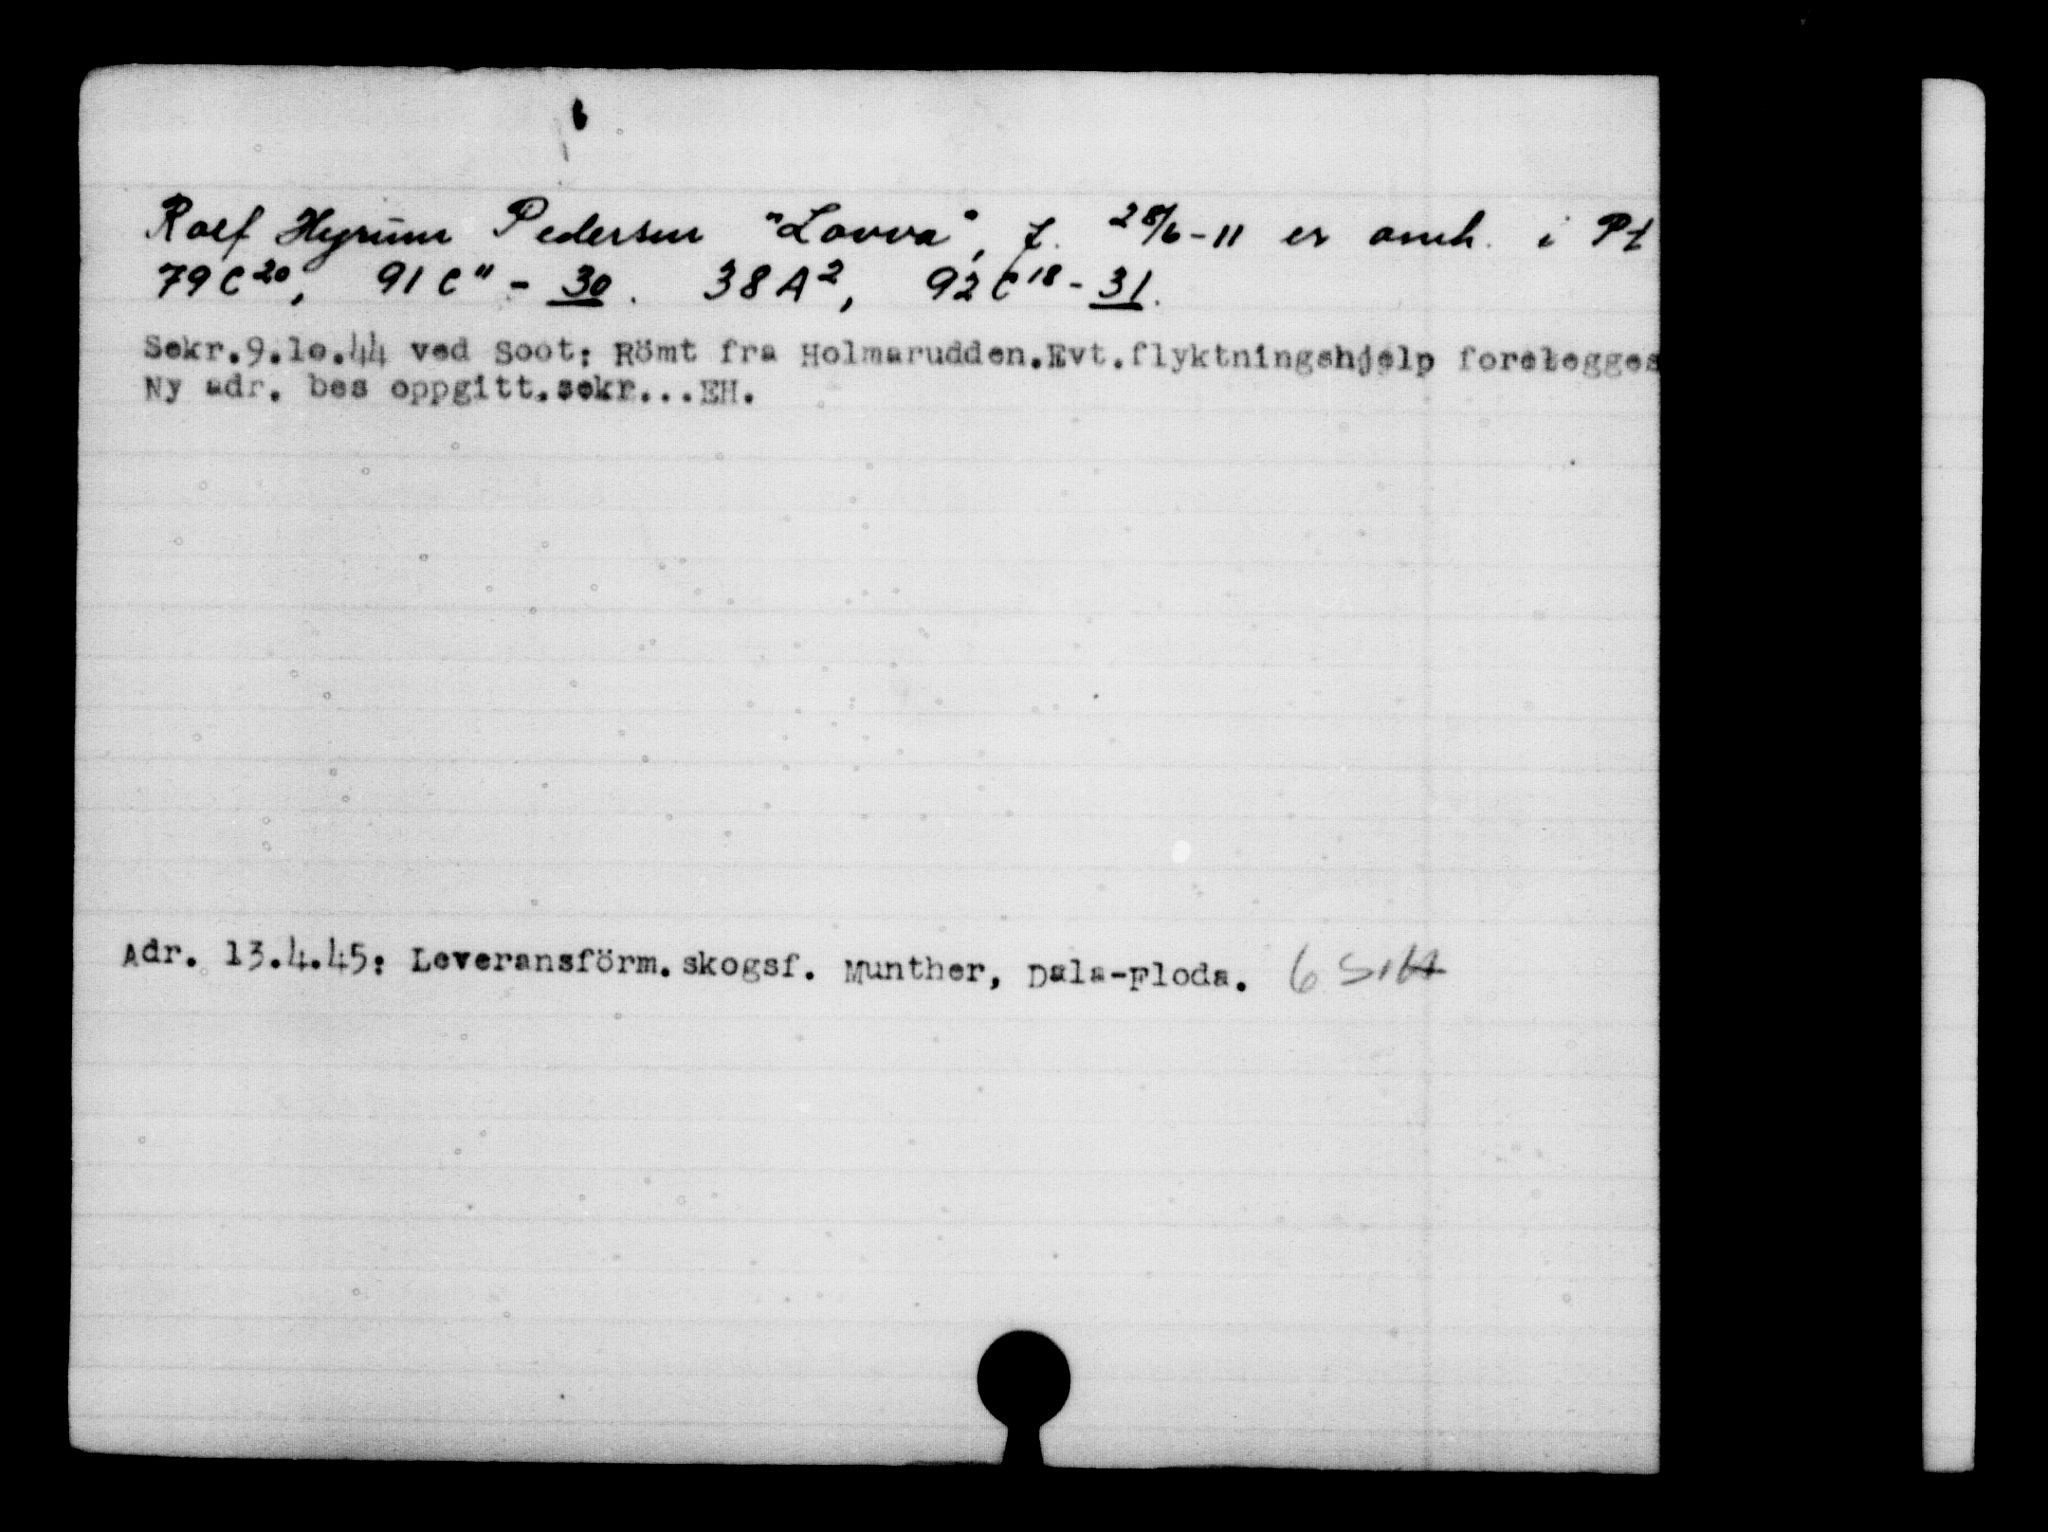 Rolf Hyrum Pedersen "Lovva", f. 28/6-11 er omh. i Pt
79 C 20, 91 C 11 - 30. 38 A 2, 92 C 18 - 31.
Sekr.9.10.44 ved Soot: Römt fra Holmarudden.Evt.flyktningshjelp forelegges
Ny adr. bes oppgitt.sekr...EH.
Adr. 13.4.45: Leveransförm.skogsf. Munther, Dala-Floda. 6